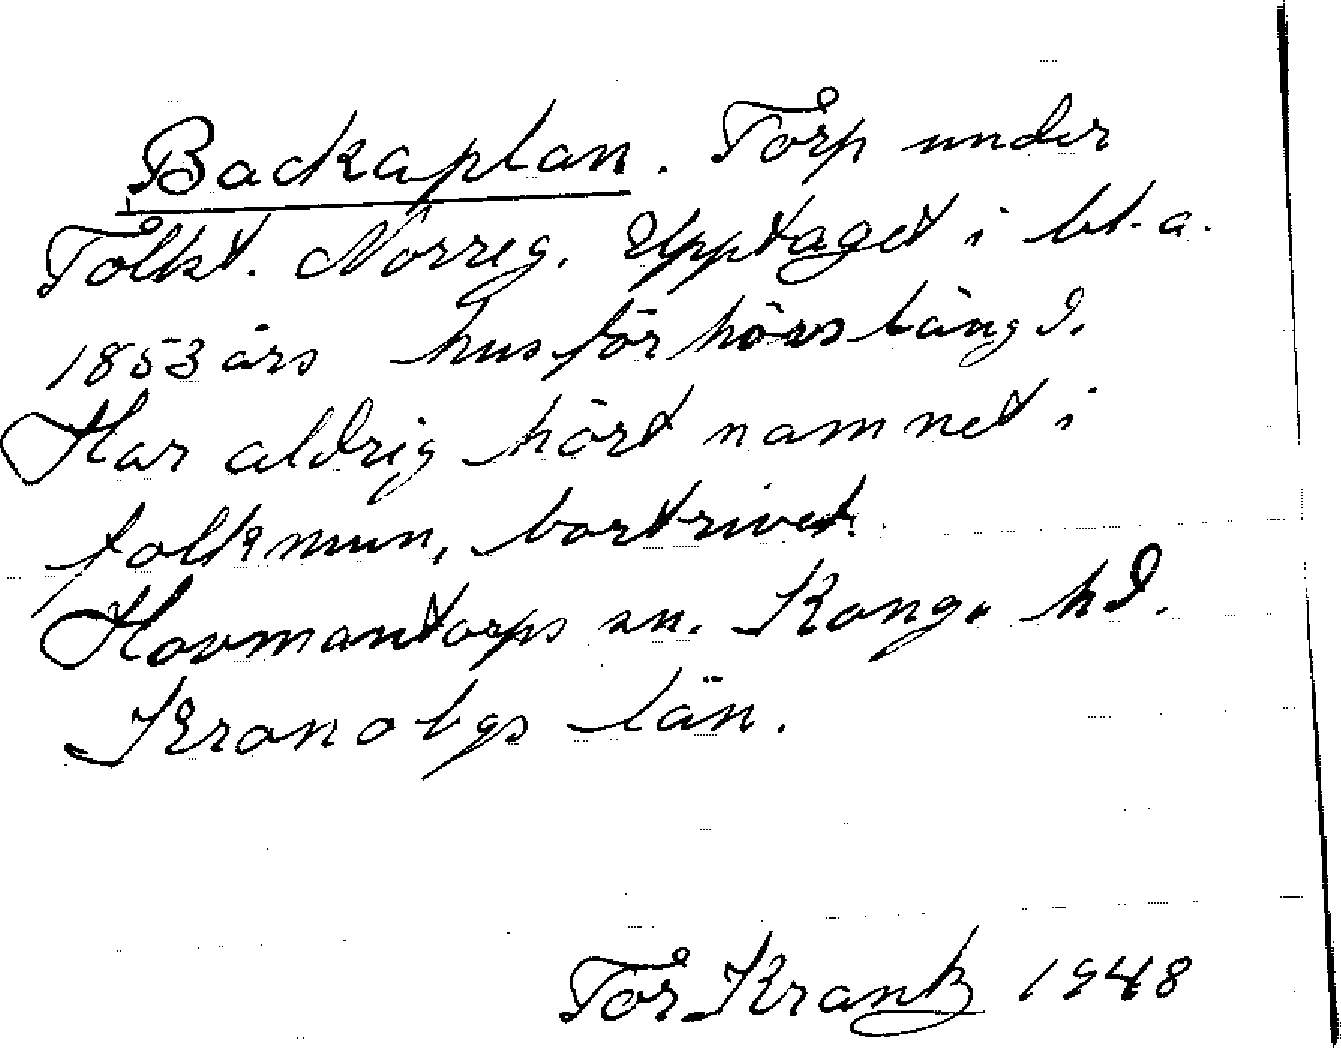 Backaplan. Torp under
Tolkt. Norreg. Upptaget i bl. a.
1853 års husförhörslängd.
Har aldrig hört namnet i
folkmun, bortrivet.
Hovmantorps sn. Konga hd.
Kronobgs län.
Tor Krantz 1948